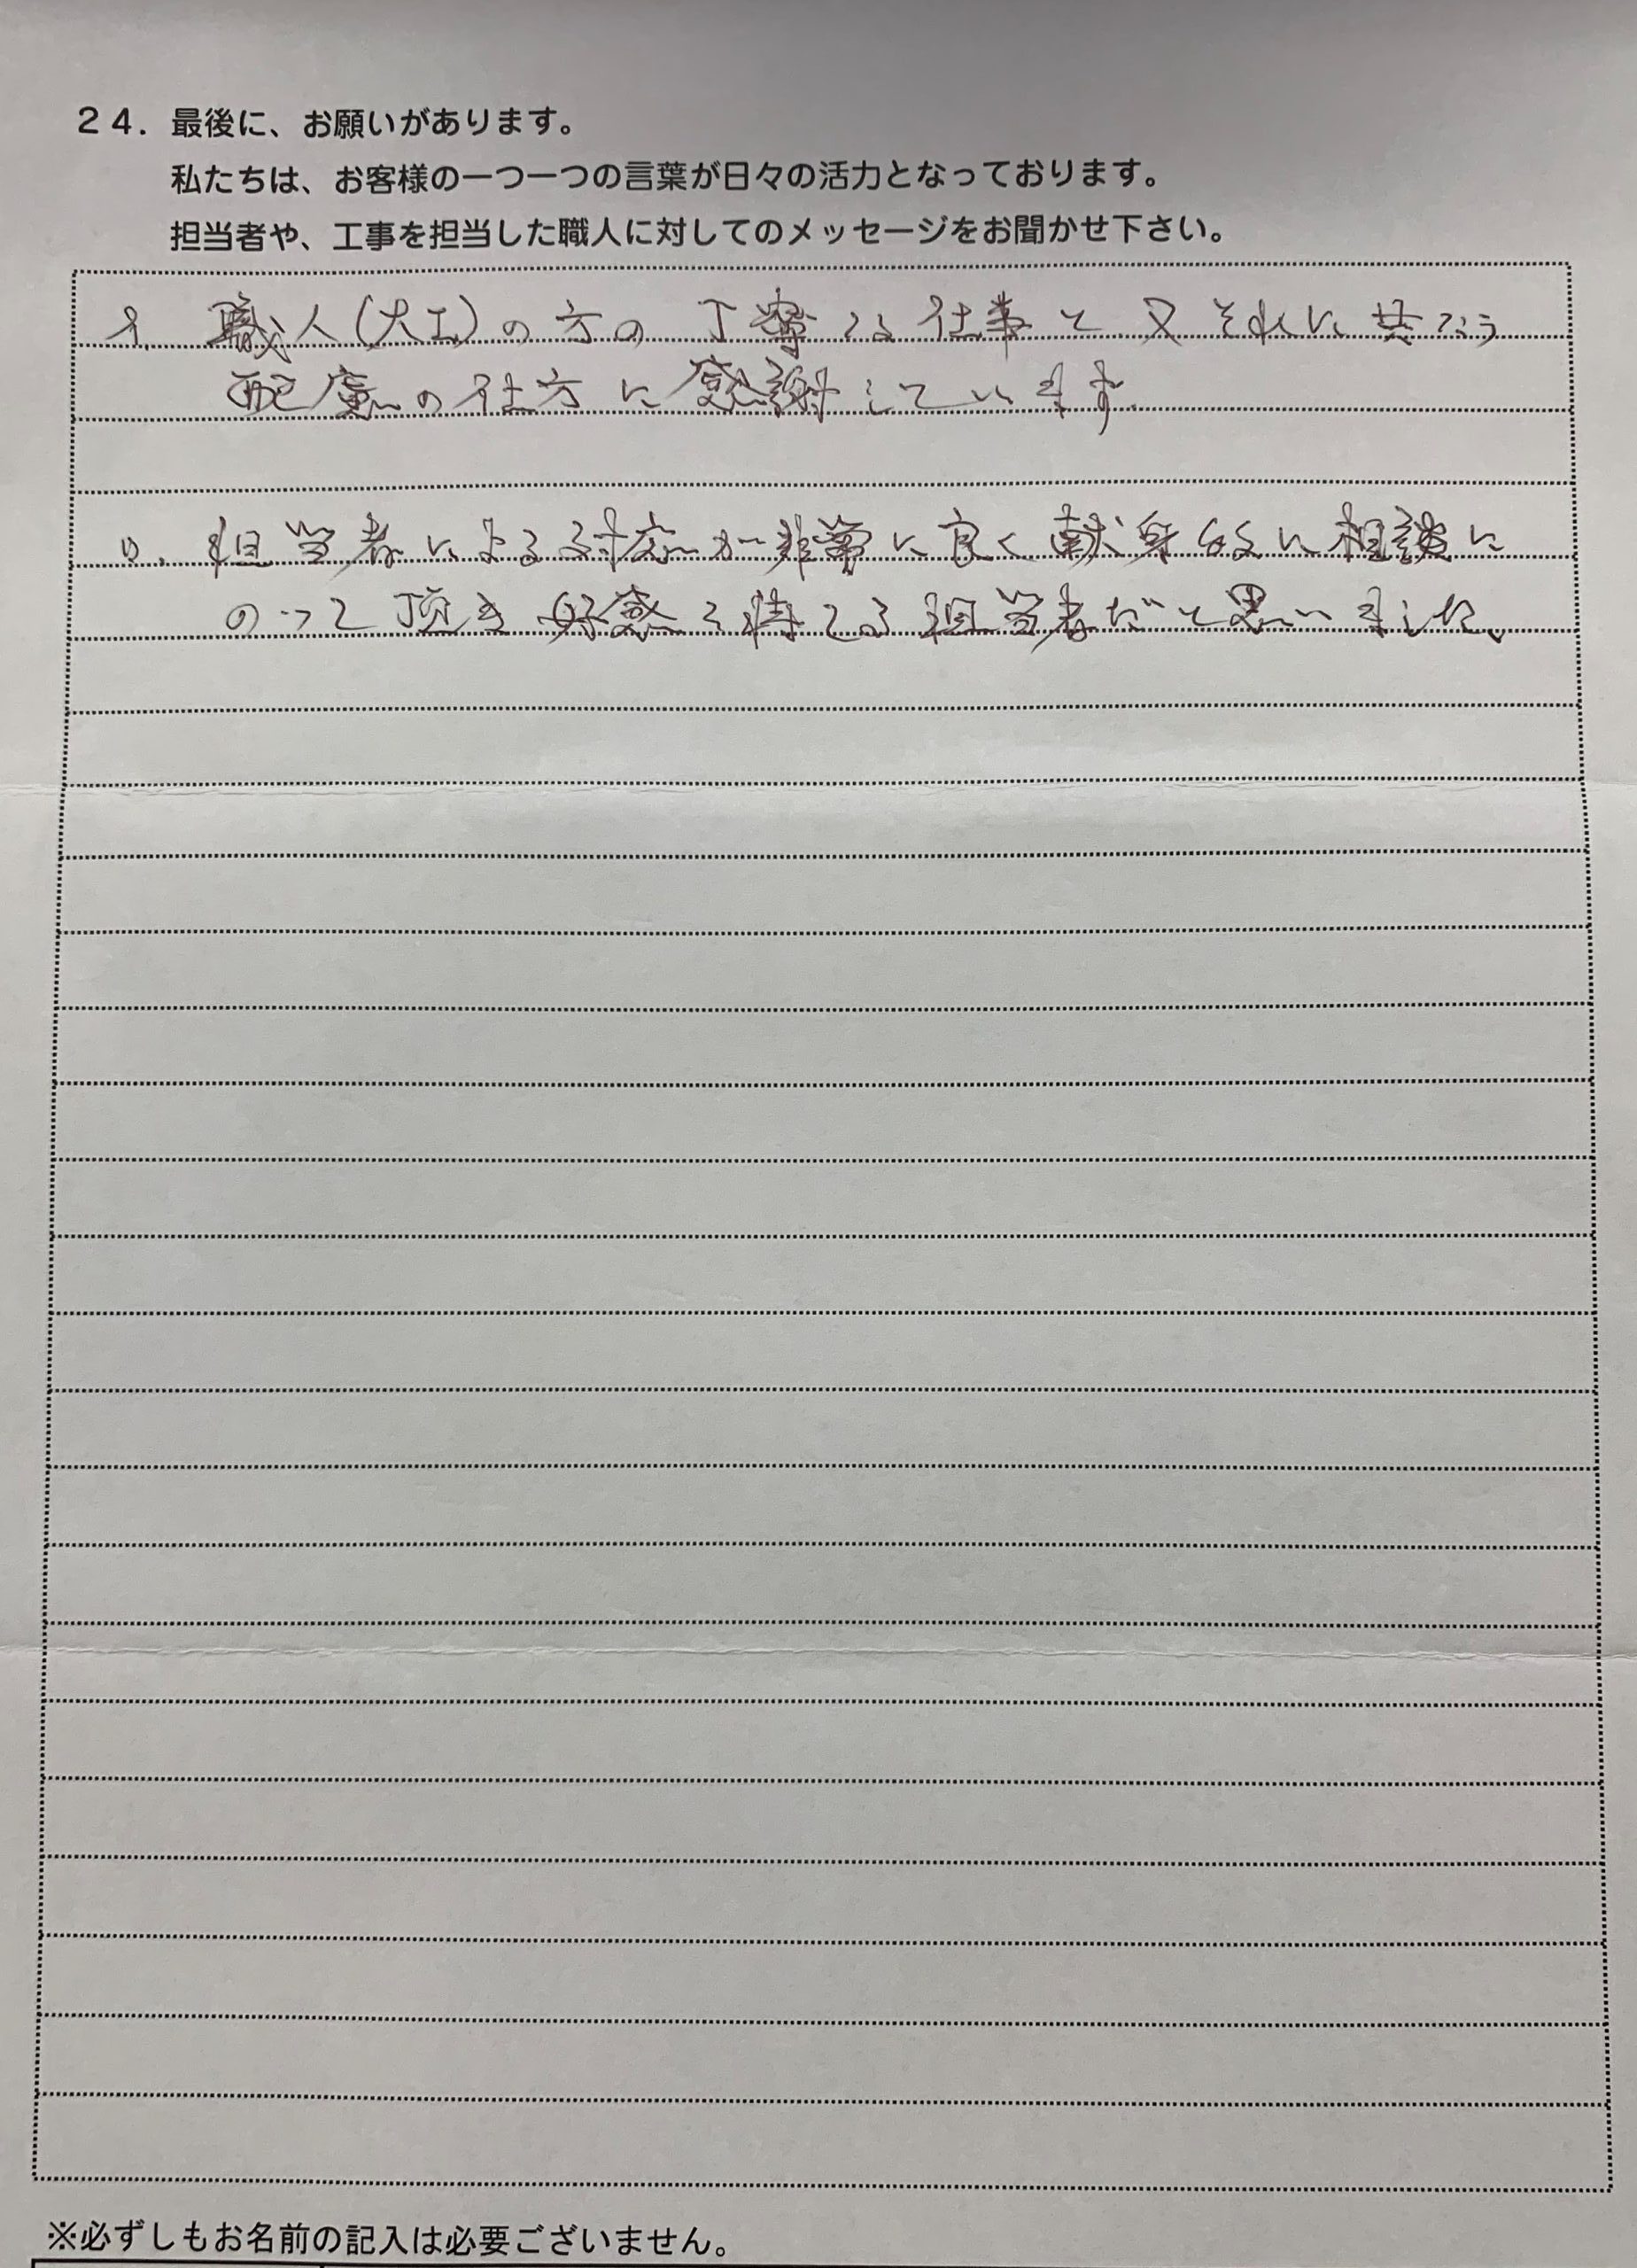 24. 最後に、お願いがあります。
私たちは、お客様の一つ一つの言葉が日々の活力となっております。
担当者や、工事を担当した職人に対してのメッセージをお聞かせ下さい。
イ. 職人(大工)の方の丁寧な仕事と又それに共なう
配慮の仕方に感謝しています.
ロ. 担当者による対応が非常に良く献身的に相談に
のって頂き好感を持てる担当者だと思いました。
※必ずしもお名前の記入は必要ございません。